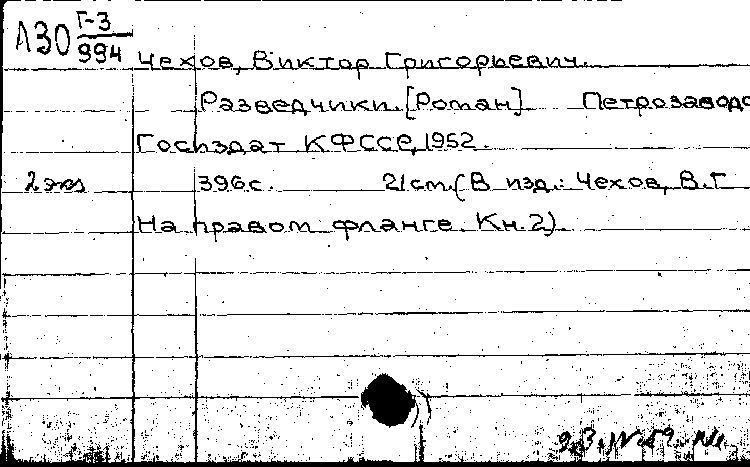 Л30 Г-3
994
Чехов, Виктор Григорьевич.
Разведчики. [Роман] Петрозаводс
Госиздат КФССР, 1952.
2 экз 396 с. 21 см. (В изд.: Чехов, В.Г
На правом фланге. Кн. 2)